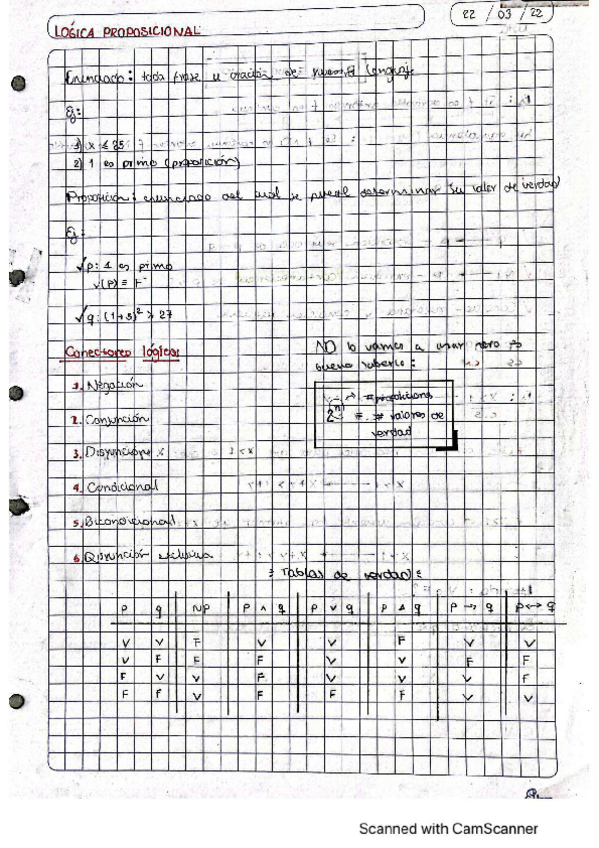 LOGICA PROPOSICIONAL
22 / 03 / 22
Enunciado: toda frase u oración de nuestro lenguaje
Ej:
1) x ≤ 25
2) 1 es primo (proposición)
Proposición: enunciado del cual se puede determinar su valor de verdad
Ej:
✓ p: 1 es primo
v(p) ≡ F
✓ q: (1+3)² > 27
Conectores lógicos
NO lo vamos a usar pero es
bueno saberlo:
1. Negación
2. Conjunción
2ⁿ → # proposiciones
= # valores de
verdad
3. Disyunción
4. Condicional
5. Bicondicional
6. Disyunción exclusiva
: Tablas de verdad :
p q ~p p ∧ q p ∨ q p Δ q p → q p ↔ q
V V F V V F V V
V F F F V V F F
F V V F V V V F
F F V F F F V V
Scanned with CamScanner